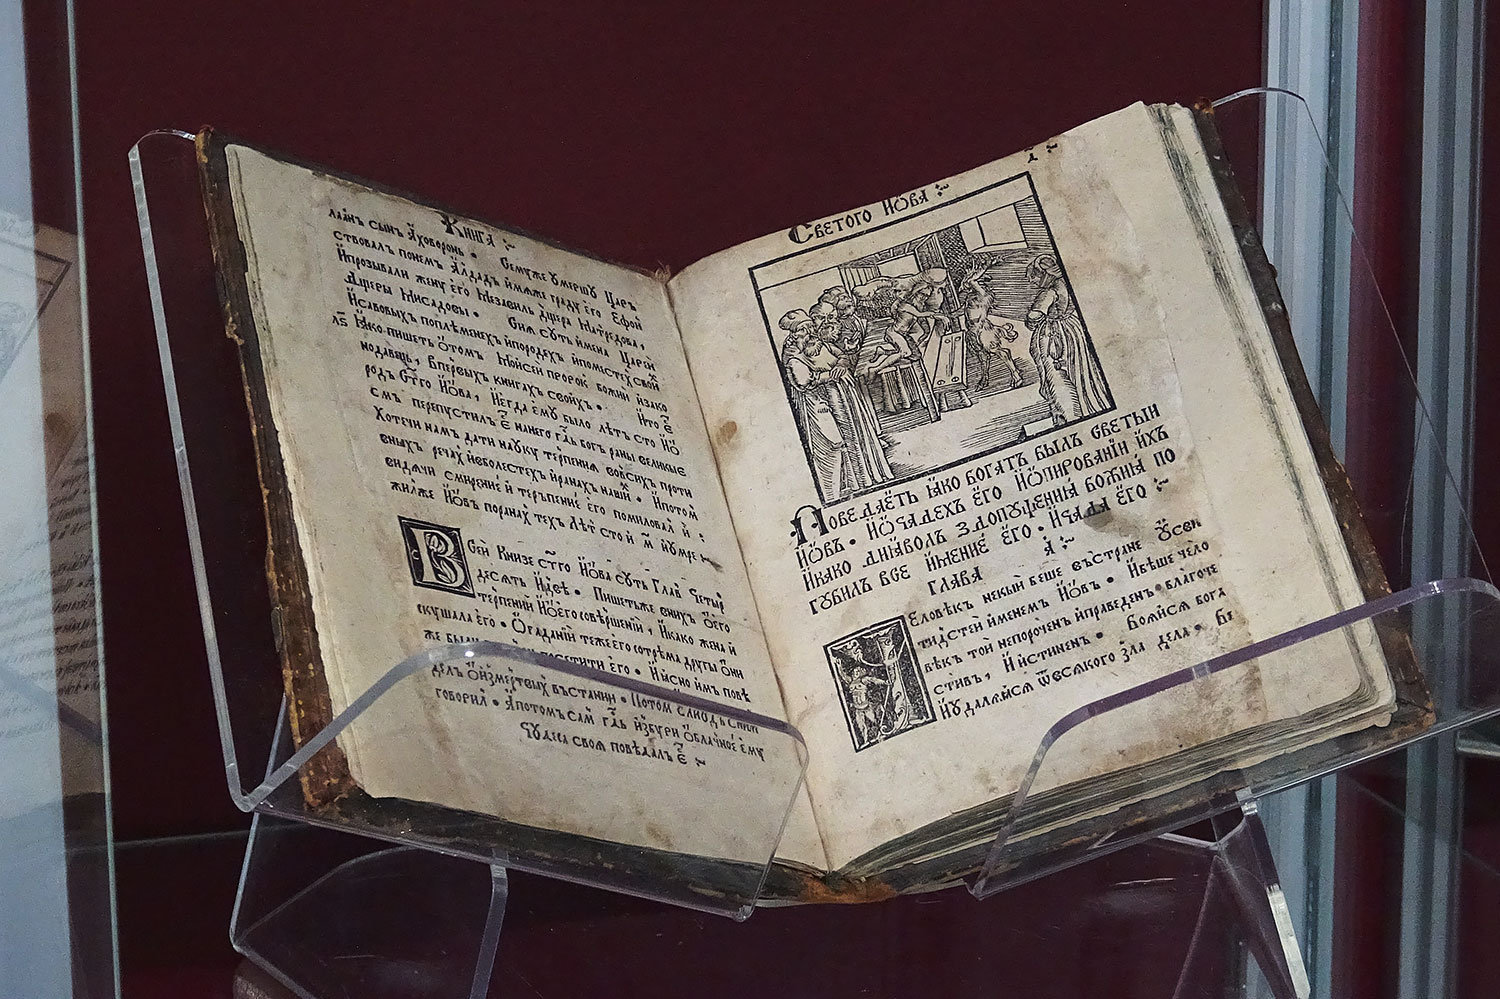 Книга
лаанъ сынъ Аховоронь • Семуже умершу Царь
ствовалъ понемъ Алдадъ имяже граду его Ефои
Ипрозывали жену его Мезавиль дщера Матредова,
дщеры Мисадовы • Сия суть имена Царей
Исавовыхъ поплеменехъ ипородех ипоместех свои
Яко пишеть ѡтомъ Мойсеи пророк божии изако
нодавець, впервыхъ книгахъ своихъ • Ито Е
род стго Иѡва, Иегда ему было летъ сто Иѡ
смъ перепустилъ Е нанего гдь богъ раны великые
Хотечи намъ дати науку терпения вовсих проти
вныхъ речах иеболестехъ иранахъ наших • Ипотом
видячи смирение и терьпение его помиловал и •
жилже Иѡвъ поранах тех лет сто и м иумре
Всеи Книзе стго Иѡва суть Глав Четыр
десять идве • Пишетьже вних ѡего
терпении Иѡего совершении, Икако жена и
скушала его • Ѡгадании теже его сотрема другы ѡни
же были посетити его • Иясно имъ пове
делъ ѡизмертвых въстании • Потом
говорил • Апотомъ сам гдь избури ѡблачное ему
Чудеса своя поведалъ Е
Светого Иѡва
Поведаеть яко богатъ былъ светыи
Иѡвъ • Иѡчадехъ его Иѡпировании ихъ
Икако диаволъ здопущения божия по
губилъ все имение его • Ичада его
Глава а
Человекъ некыи беше въстране Ѹсви
тидстеи именемъ Иѡвъ • Ибеше чело
векъ той непороченъ иправеденъ • благоче
стивъ, Иистиненъ • Бояйся бога
Иудаляйся ѿвсякого зла дела • бе